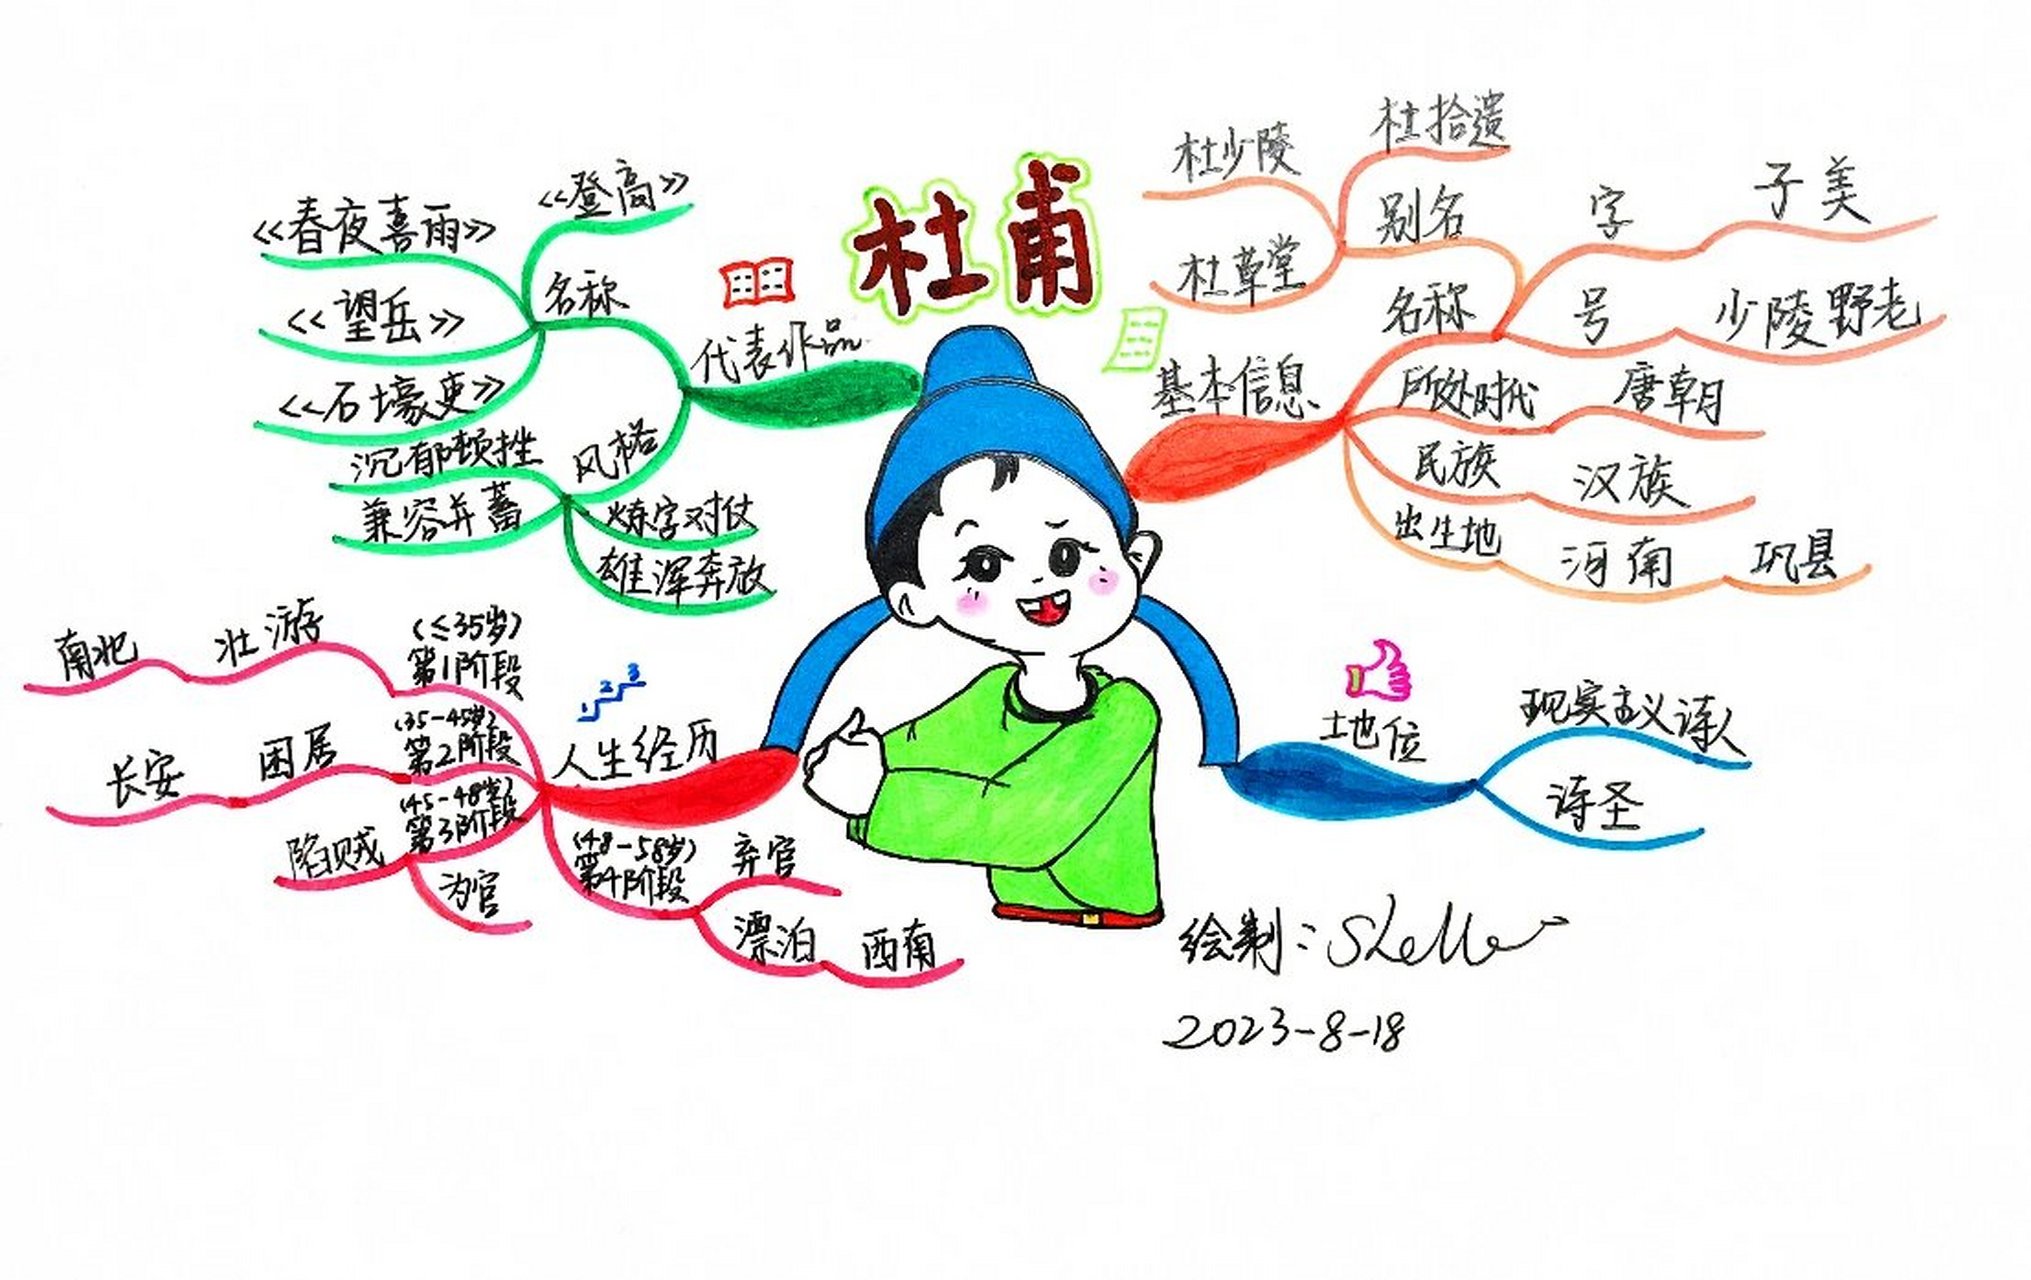 杜甫
基本信息
名称
别名
杜拾遗
杜少陵
杜草堂
字 子美
号 少陵野老
所处时代 唐朝
民族 汉族
出生地 河南 巩县
地位
现实主义诗人
诗圣
人生经历
1 2 3
(≤35岁)
第1阶段
壮游
南北
(35-45岁)
第2阶段
困居
长安
(45-48岁)
第3阶段
陷贼
为官
(48-58岁)
第4阶段
弃官
漂泊 西南
代表作品
名称
《登高》
《春夜喜雨》
《望岳》
《石壕吏》
风格
沉郁顿挫
兼容并蓄
炼字对仗
雄浑奔放
绘制:
2023-8-18